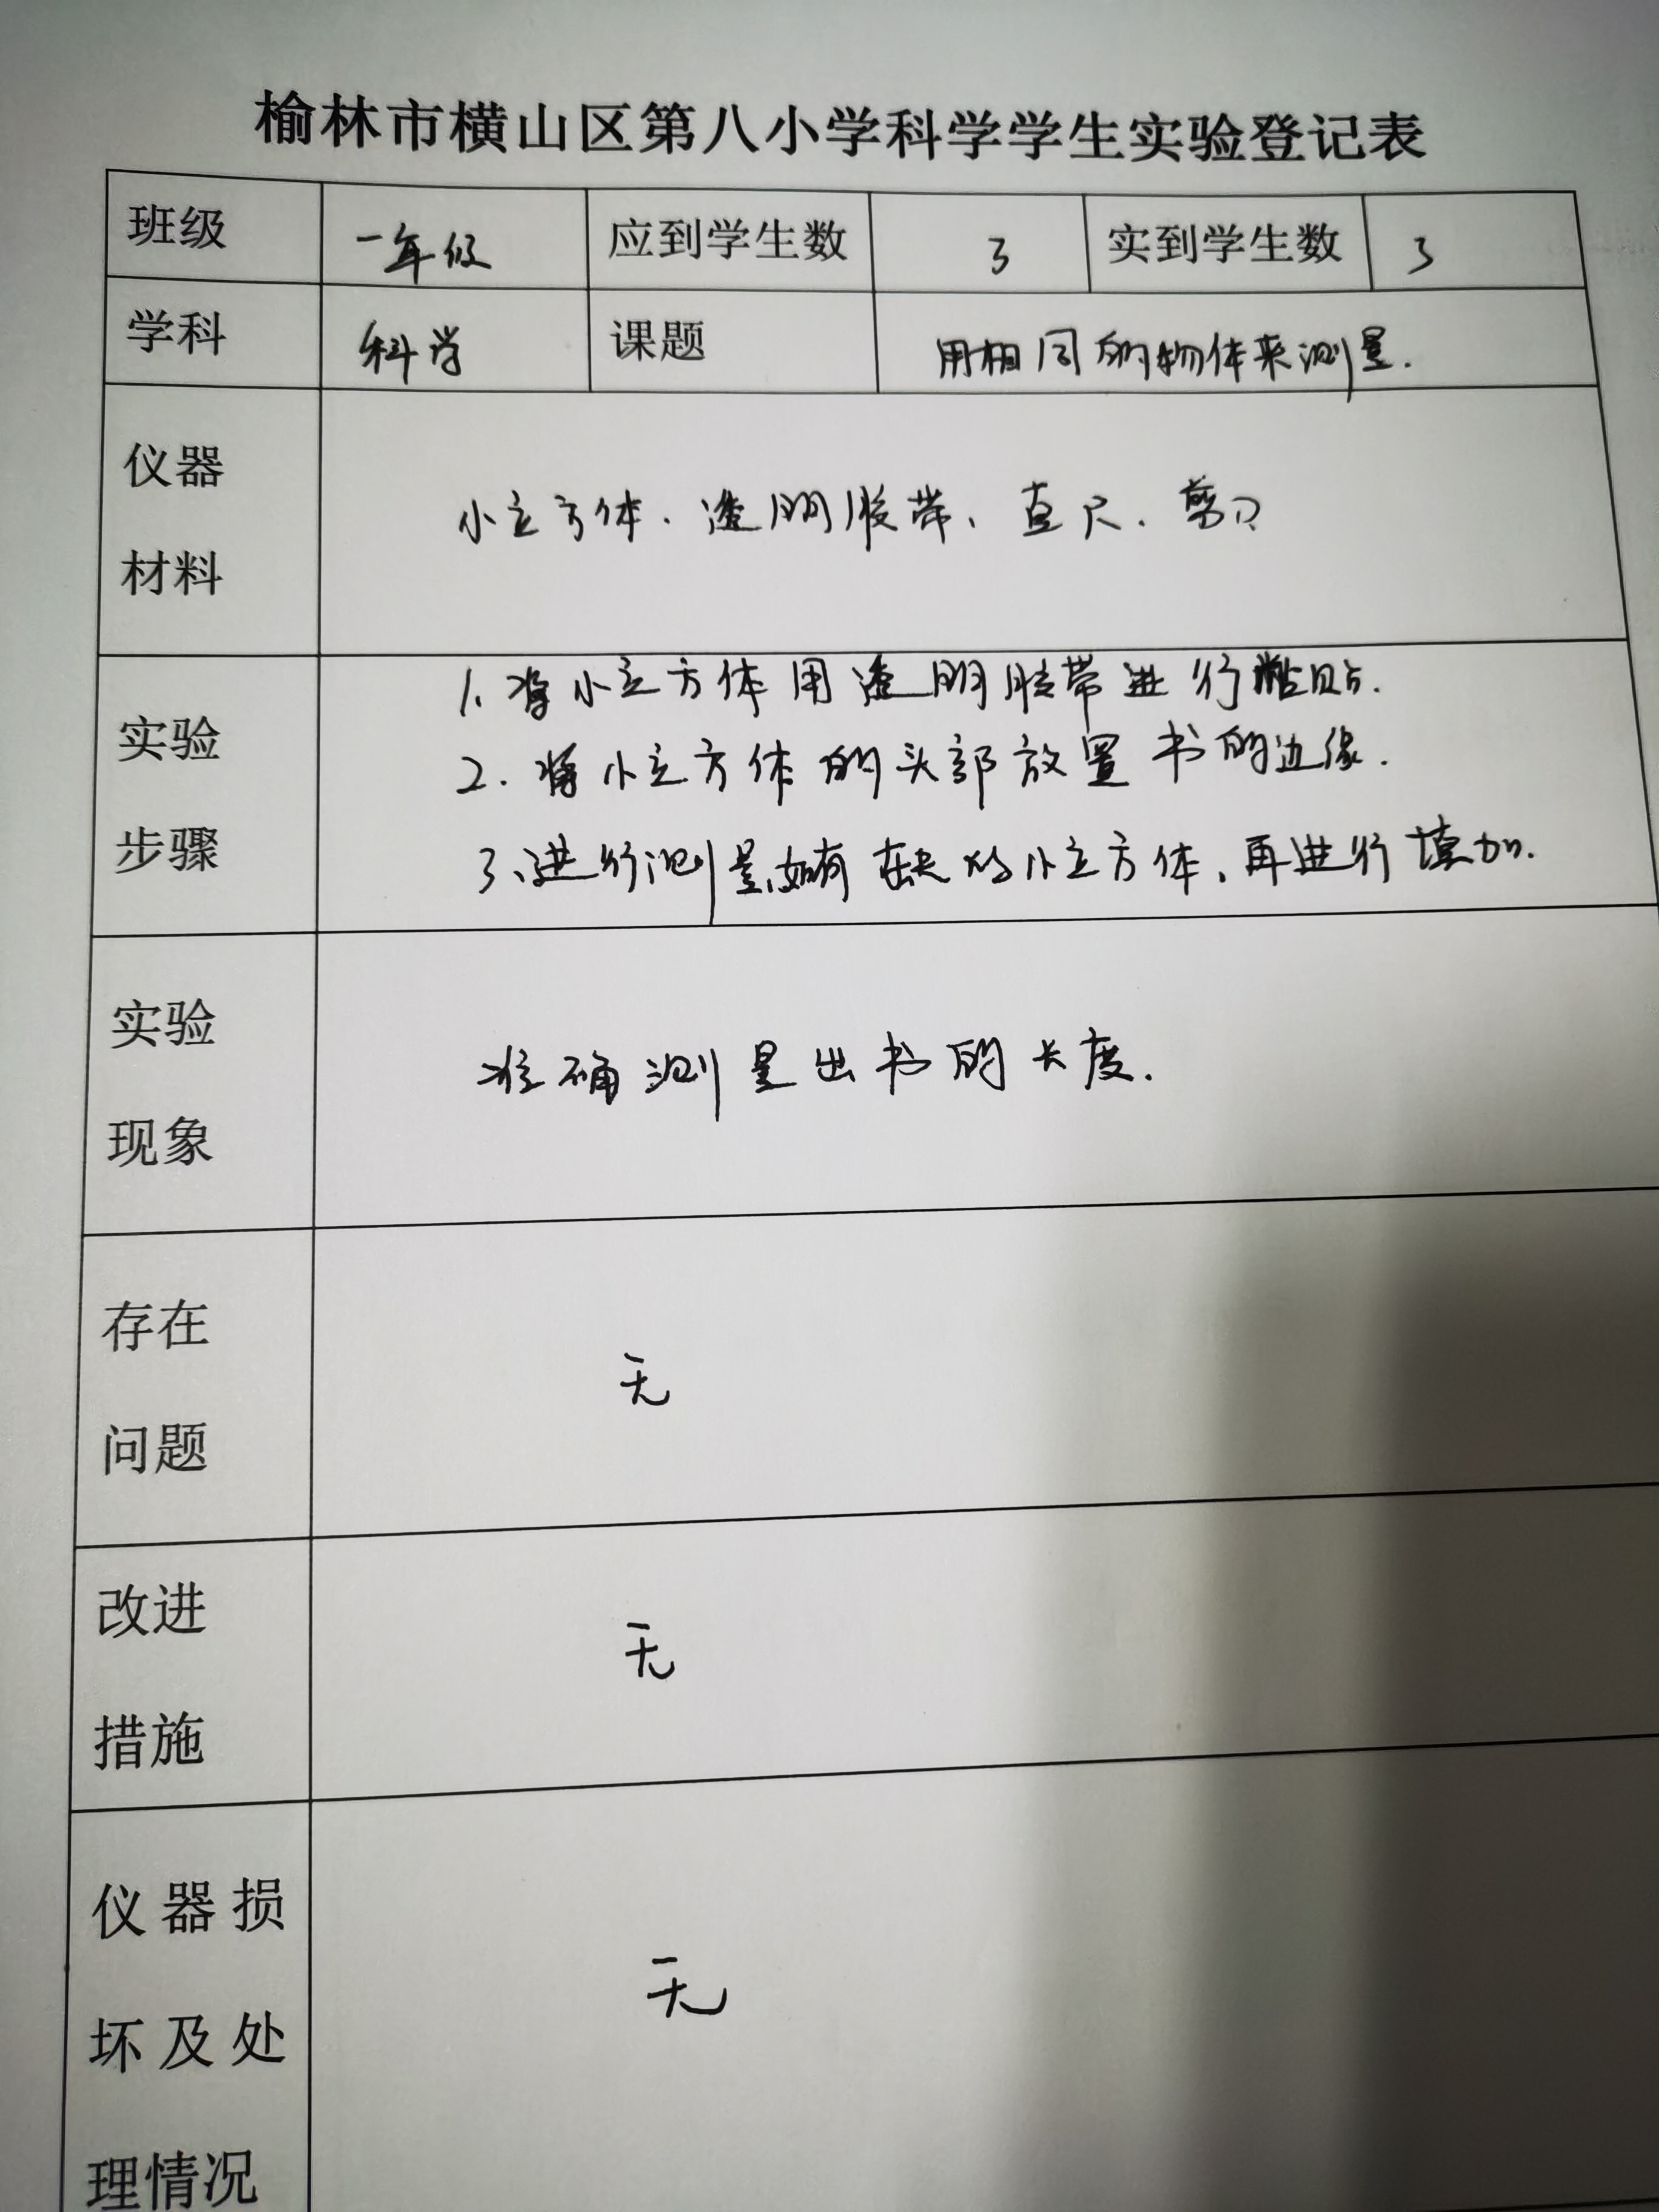 榆林市横山区第八小学科学学生实验登记表
班级 一年级 应到学生数 3 实到学生数 3
学科 科学 课题 用相同的物体来测量.
仪器
材料
小立方体、透明胶带、直尺、剪刀
实验
步骤
1. 将小立方体用透明胶带进行粘贴.
2. 将小立方体的头部放置书的边缘.
3、进行测量,如有缺的小立方体,再进行填加.
实验
现象
准确测量出书的长度.
存在
问题
无
改进
措施
无
仪器损
坏及处
理情况
无